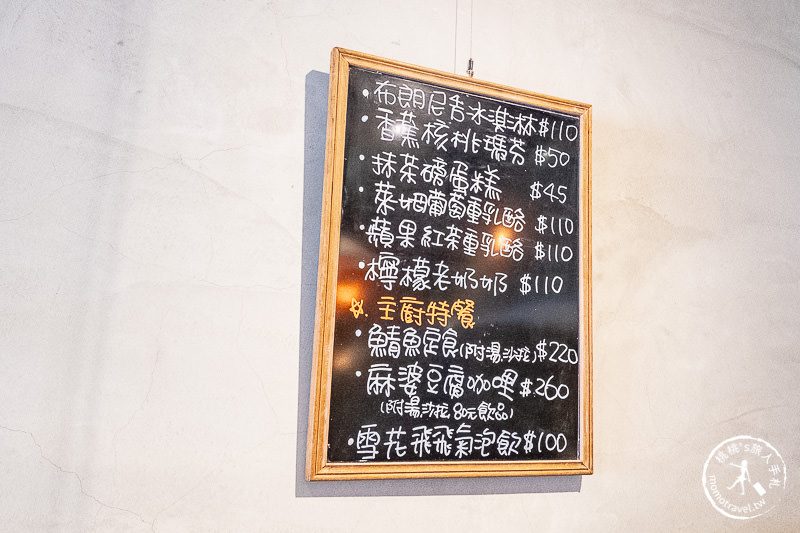 ·布朗尼告冰淇淋$110
·香蕉核桃瑪芬 $50
·抹茶磅蛋糕 $45
·萊姆葡萄重乳酪 $110
·蘋果紅茶重乳酪 $110
·檸檬老奶奶 $110
☆.主廚特餐
·鯖魚定食(附湯.沙拉)$220
·麻婆豆腐咖哩$260
(附湯沙拉,80元飲品)
·雪花飛飛氣泡飲$100
桃桃's旅人手札
momotravel.tw